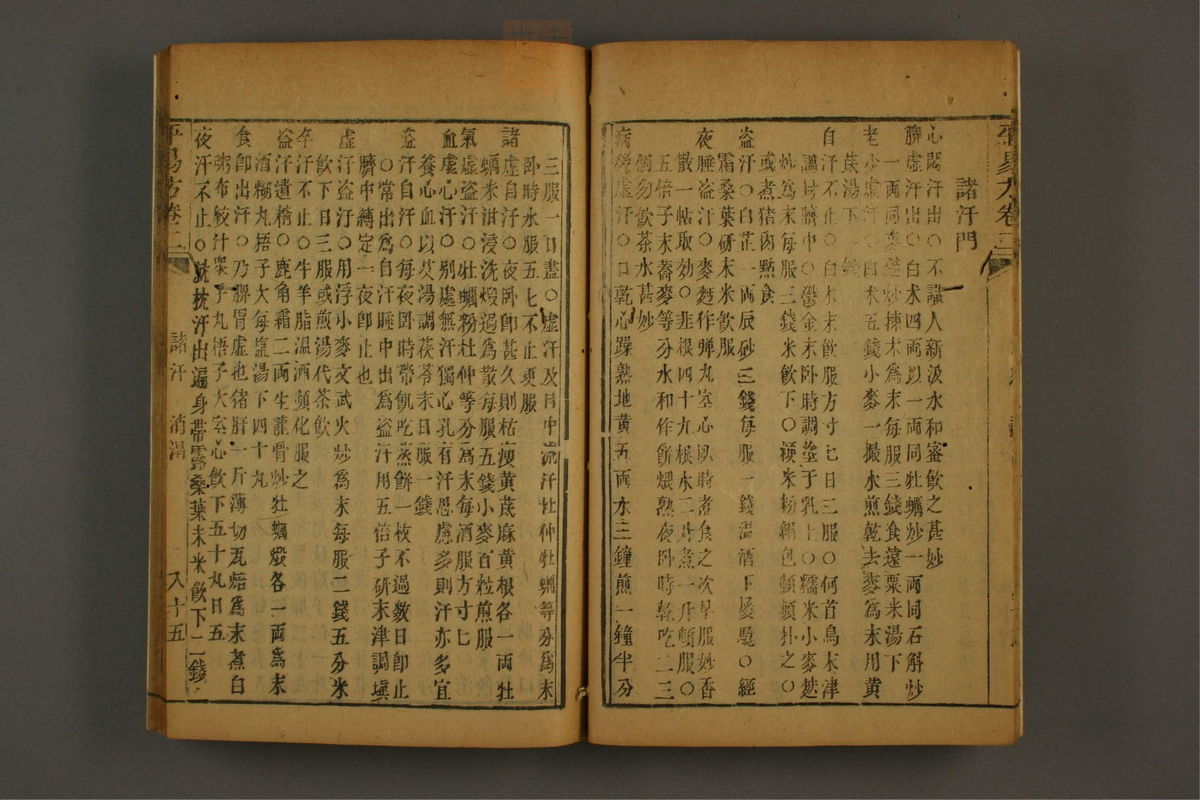 諸汗門
心悶汗出○不識人新汲水和蜜飲之甚妙
脾虛汗出○白朮四兩以一兩同牡蠣炒一兩同石斛炒
一兩同麥麩炒揀朮為末每服三錢食遠粟米湯下
老少虛汗○白朮五錢小麥一撮水煎乾去麥為末用黃
蓍湯下一錢
自汗不止○白朮末飲服方寸匕日三服○何首烏末津
調封臍中○鬱金末臥時調塗于乳上○糯米小麥麩
炒為末每服三錢米飲下○粳米粉絹包頻頻扑之○
或煮猪肉點食
盜汗○白芷一兩辰砂三錢每服一錢溫酒下屢驗○經
霜桑葉研末米飲服
夜睡盜汗○麥麵作彈丸空心臥時煮食之次早服妙香
散一帖取効○韭根四十九根水二升煮一升頓服○
五倍子末蕎麥等分水和作餅煨熟夜臥時乾吃二三
個勿飲茶水甚妙
病後虛汗○口乾心躁熟地黃五兩水三鐘煎一鐘半分
三服一日盡○虛汗及目中流汗杜仲牡蠣等分為末
臥時水服五匕不止更服
諸虛自汗○夜臥即甚久則枯瘦黃蓍麻黃根各一兩牡
蠣米泔浸洗煅過為散每服五錢小麥百粒煎服
氣虛盜汗○牡蠣粉杜仲等分為末每酒服方寸匕○
血虛心汗○別處無汗獨心孔有汗思慮多則汗亦多宜
養心血以艾湯調茯苓末日服一錢
盜汗自汗○每夜臥時帶飢吃蒸餅一枚不過數日即止
○常出為自汗睡中出為盜汗用五倍子研末津調填
臍中縛定一夜即止也
虛汗盜汗○用浮小麥文武火炒為末每服二錢五分米
飲下日三服或煎湯代茶飲
卒汗不止○牛羊脂溫酒頻化服之
盜汗遺精○鹿角霜二兩生龍骨炒牡蠣煅各一兩為末
酒糊丸梧子大每鹽湯下四十丸
食即出汗○乃脾胃虛也猪肝一斤薄切瓦焙為末煮白
粥布絞汁衆手丸梧子大空心飲下五十丸日五
夜汗不止○就枕汗出遍身帶露桑葉末米飲下二錢
卷二
諸汗
消渴
八十五